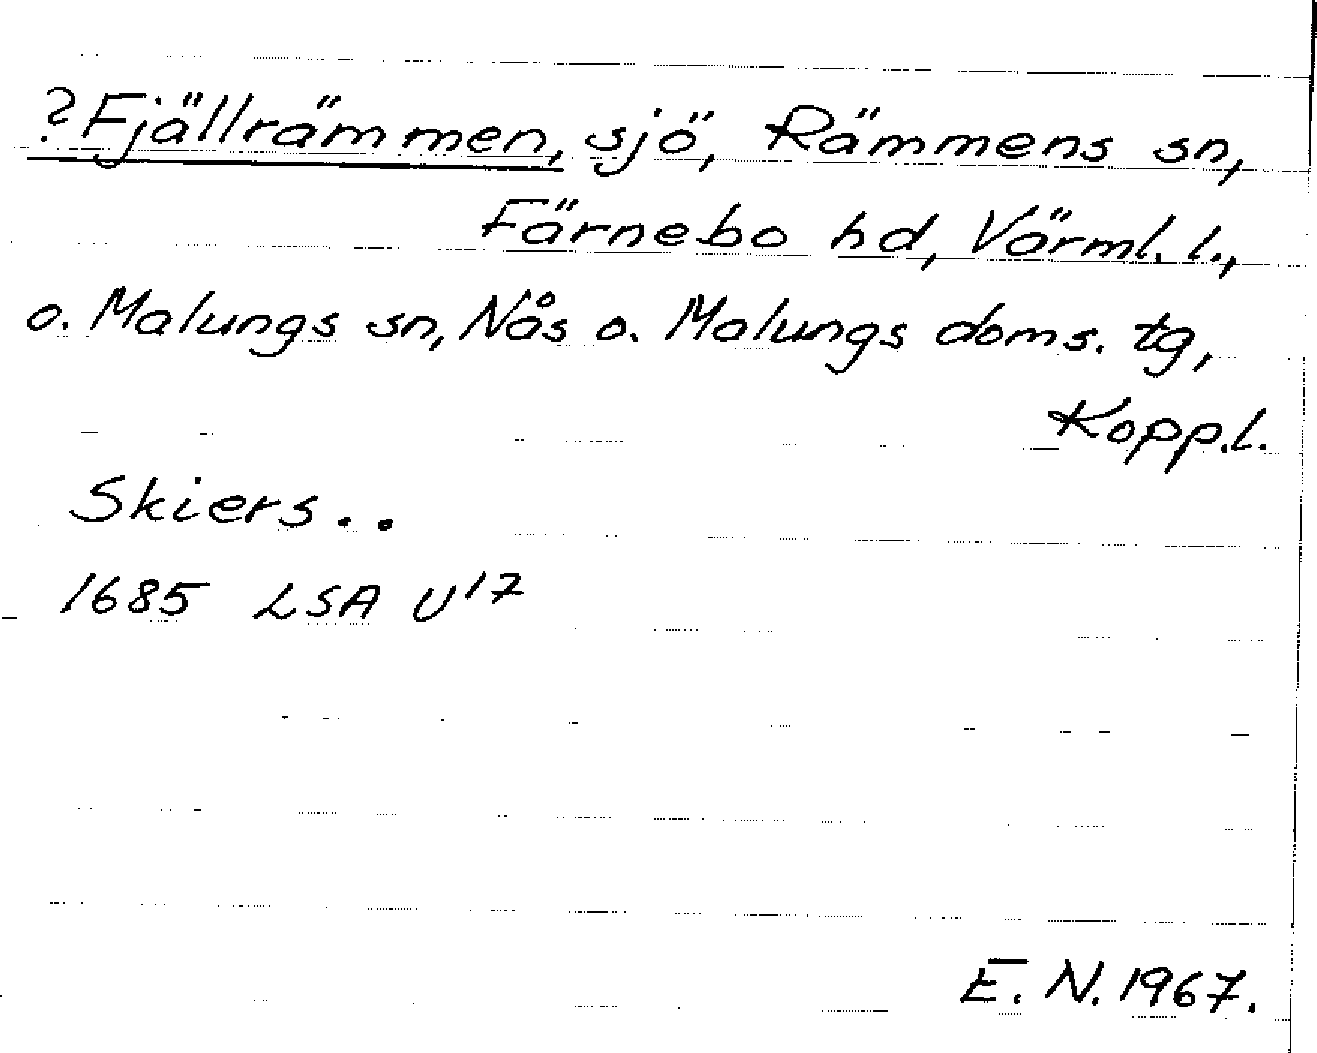 ?Fjällrämmen, sjö, Rämmens sn,
Färnebo hd, Värml. l.,
o. Malungs sn, Nås o. Malungs doms. tg,
Kopp.l.
Skiers..
1685 LSA U17
E. N. 1967.